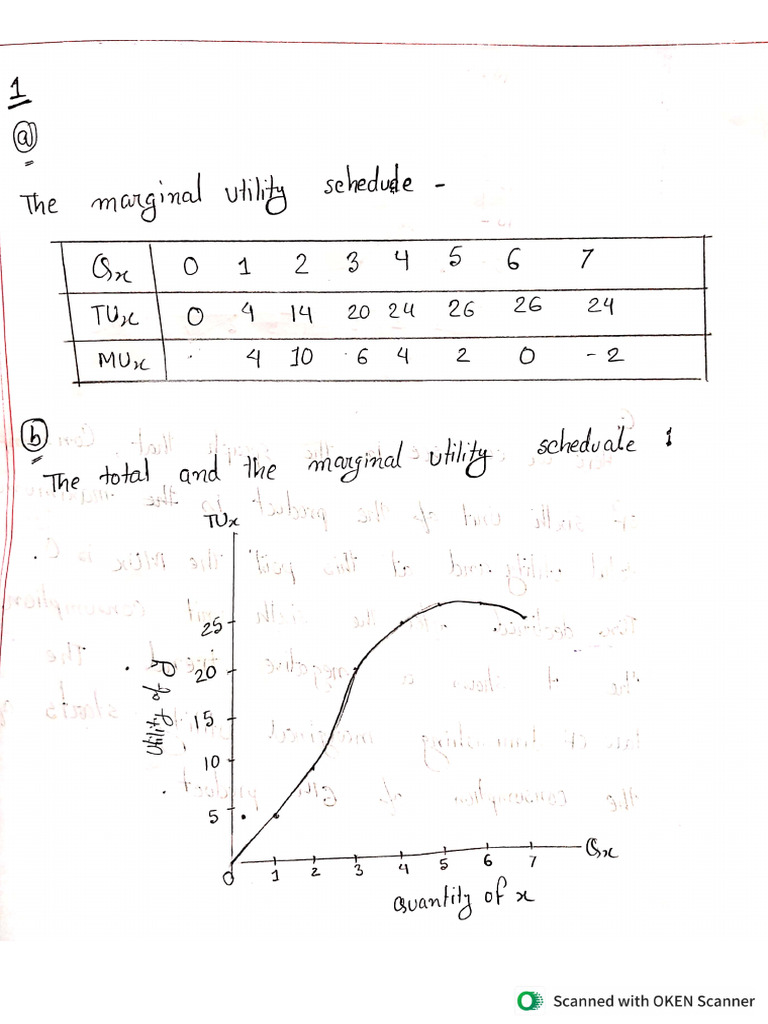 1
a
The marginal utility schedule -
Qx 0 1 2 3 4 5 6 7
TUx 0 4 14 20 24 26 26 24
MUx . 4 10 6 4 2 0 -2
b
The total and the marginal utility scheduale 1
TUx
25
20
15
10
5
0 1 2 3 4 5 6 7 Qx
Utility of y
Quantity of x
Scanned with OKEN Scanner